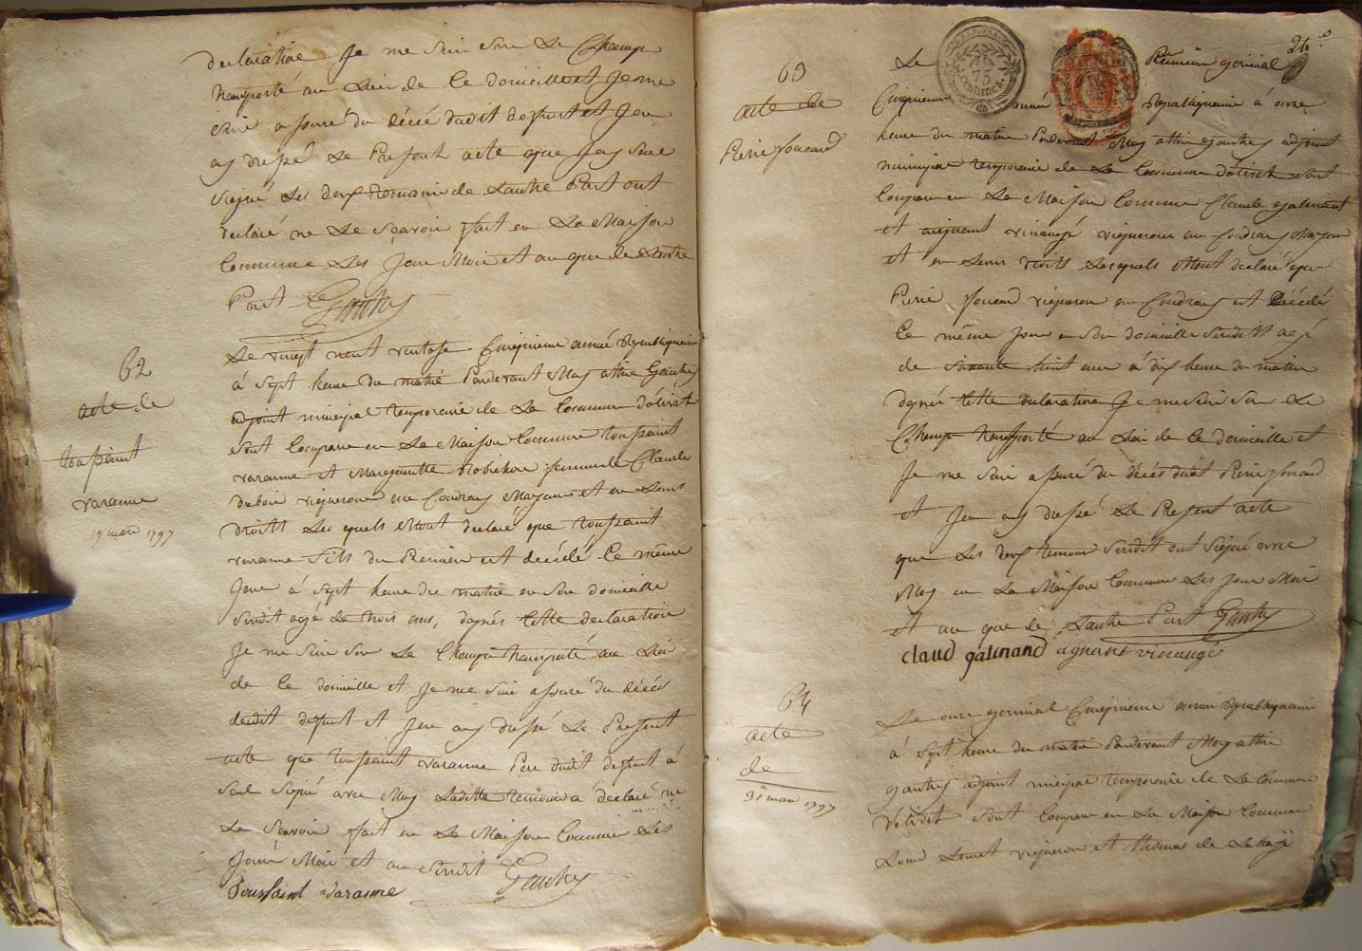 declaration Je me suis sur Le Champ
transporté au Lieu de Ce domicille et Je me
suis assuré du décé dudit defunt et Jen
ay dressé Le Present acte que Jay seul
signé Les deux temoins de Lautre Part ont
declaré ne Le Scavoir fait en La Maison
Commune Les Jour Mois et an que de Lautre
Part Gautry
62
acte de
toussaint
varanne
19 mars 1797
Le vingt neuf ventose Cinquieme année Republiquaine
à Sept heure du matin Pardevant Moy
adjoint municipal temporaire de La Commune d'olivet
sont Comparu en La Maison Commune toussaint
varanne et Margueritte femme de Claude
vigneron au Coudray Mayeurs et en Leurs
droits Les quels Mont declaré que toussaint
varanne fils du Premier est décédé Le même
Jour à Sept heure du matin en Son domicille
Susdit agé de trois ans, daprés Cette declaration
Je me suis sur Le Champ transporté au Lieu
de Ce domicille et Je me suis assuré du décés
dudit defunt et Jen ay dressé Le Present
acte que toussaint varanne Pere dudit defunt à
Seul Signé avec Moy Laditte temoin a déclaré ne
Le Scavoir fait en La Maison Commune Les
Jour Mois et an Susdit Gautry
Toussaint Varanne
63
acte de
Pierre foucaud
26
Le Premier germinal
Cinquieme année Republiquaine à onze
heure du matin Pardevant Moy gautry adjoint
municipal temporaire de La Commune dolivet sont
Comparu en La Maison Commune Claude galinant
et aignant vinaugé vignerons au Coudray Mayeurs
et en Leurs droits Lesquels Mont declaré que
Pierre foucaud vigneron au Coudray est Décédé
Le même Jour en Son domicille Susdit agé
de Soixante huit ans à dix heure du matin
daprés Cette declaration Je me suis sur Le
Champ transporté au Lieu de Ce domicille et
Je me suis assuré du décés dudit Pierre foucaud
et Jen ay dressé Le Present acte
que Les deux temoins Susdit ont Signé avec
Moy en La Maison Commune Les Jour Mois
et an que de Lautre Part Gautry
claud galinand agnant vinaugé
64
acte
de
31 mars 1797
Le onze germinal Cinquieme année Republiquaine
à Sept heure du matin Pardevant Moy
gautry adjoint municipal temporaire de La Commune
dolivet sont Comparu en La Maison Commune
vigneron et thomas de